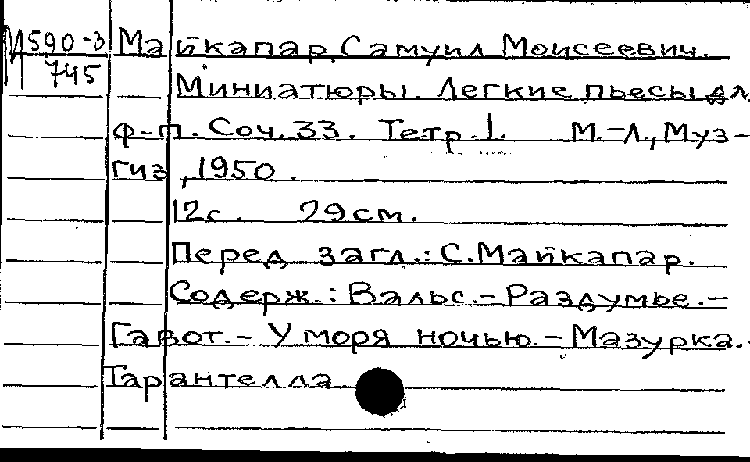 М590-3
745
Майкапар, Самуил Моисеевич.
Миниатюры. Легкие пьесы дл
ф-п. Соч. 33. Тетр. 1. М.-Л., Муз-
гиз, 1950.
12с. 29см.
Перед загл.: С. Майкапар.
Содерж.: Вальс.- Раздумье.-
Гавот.- У моря ночью.- Мазурка.-
Тарантелла